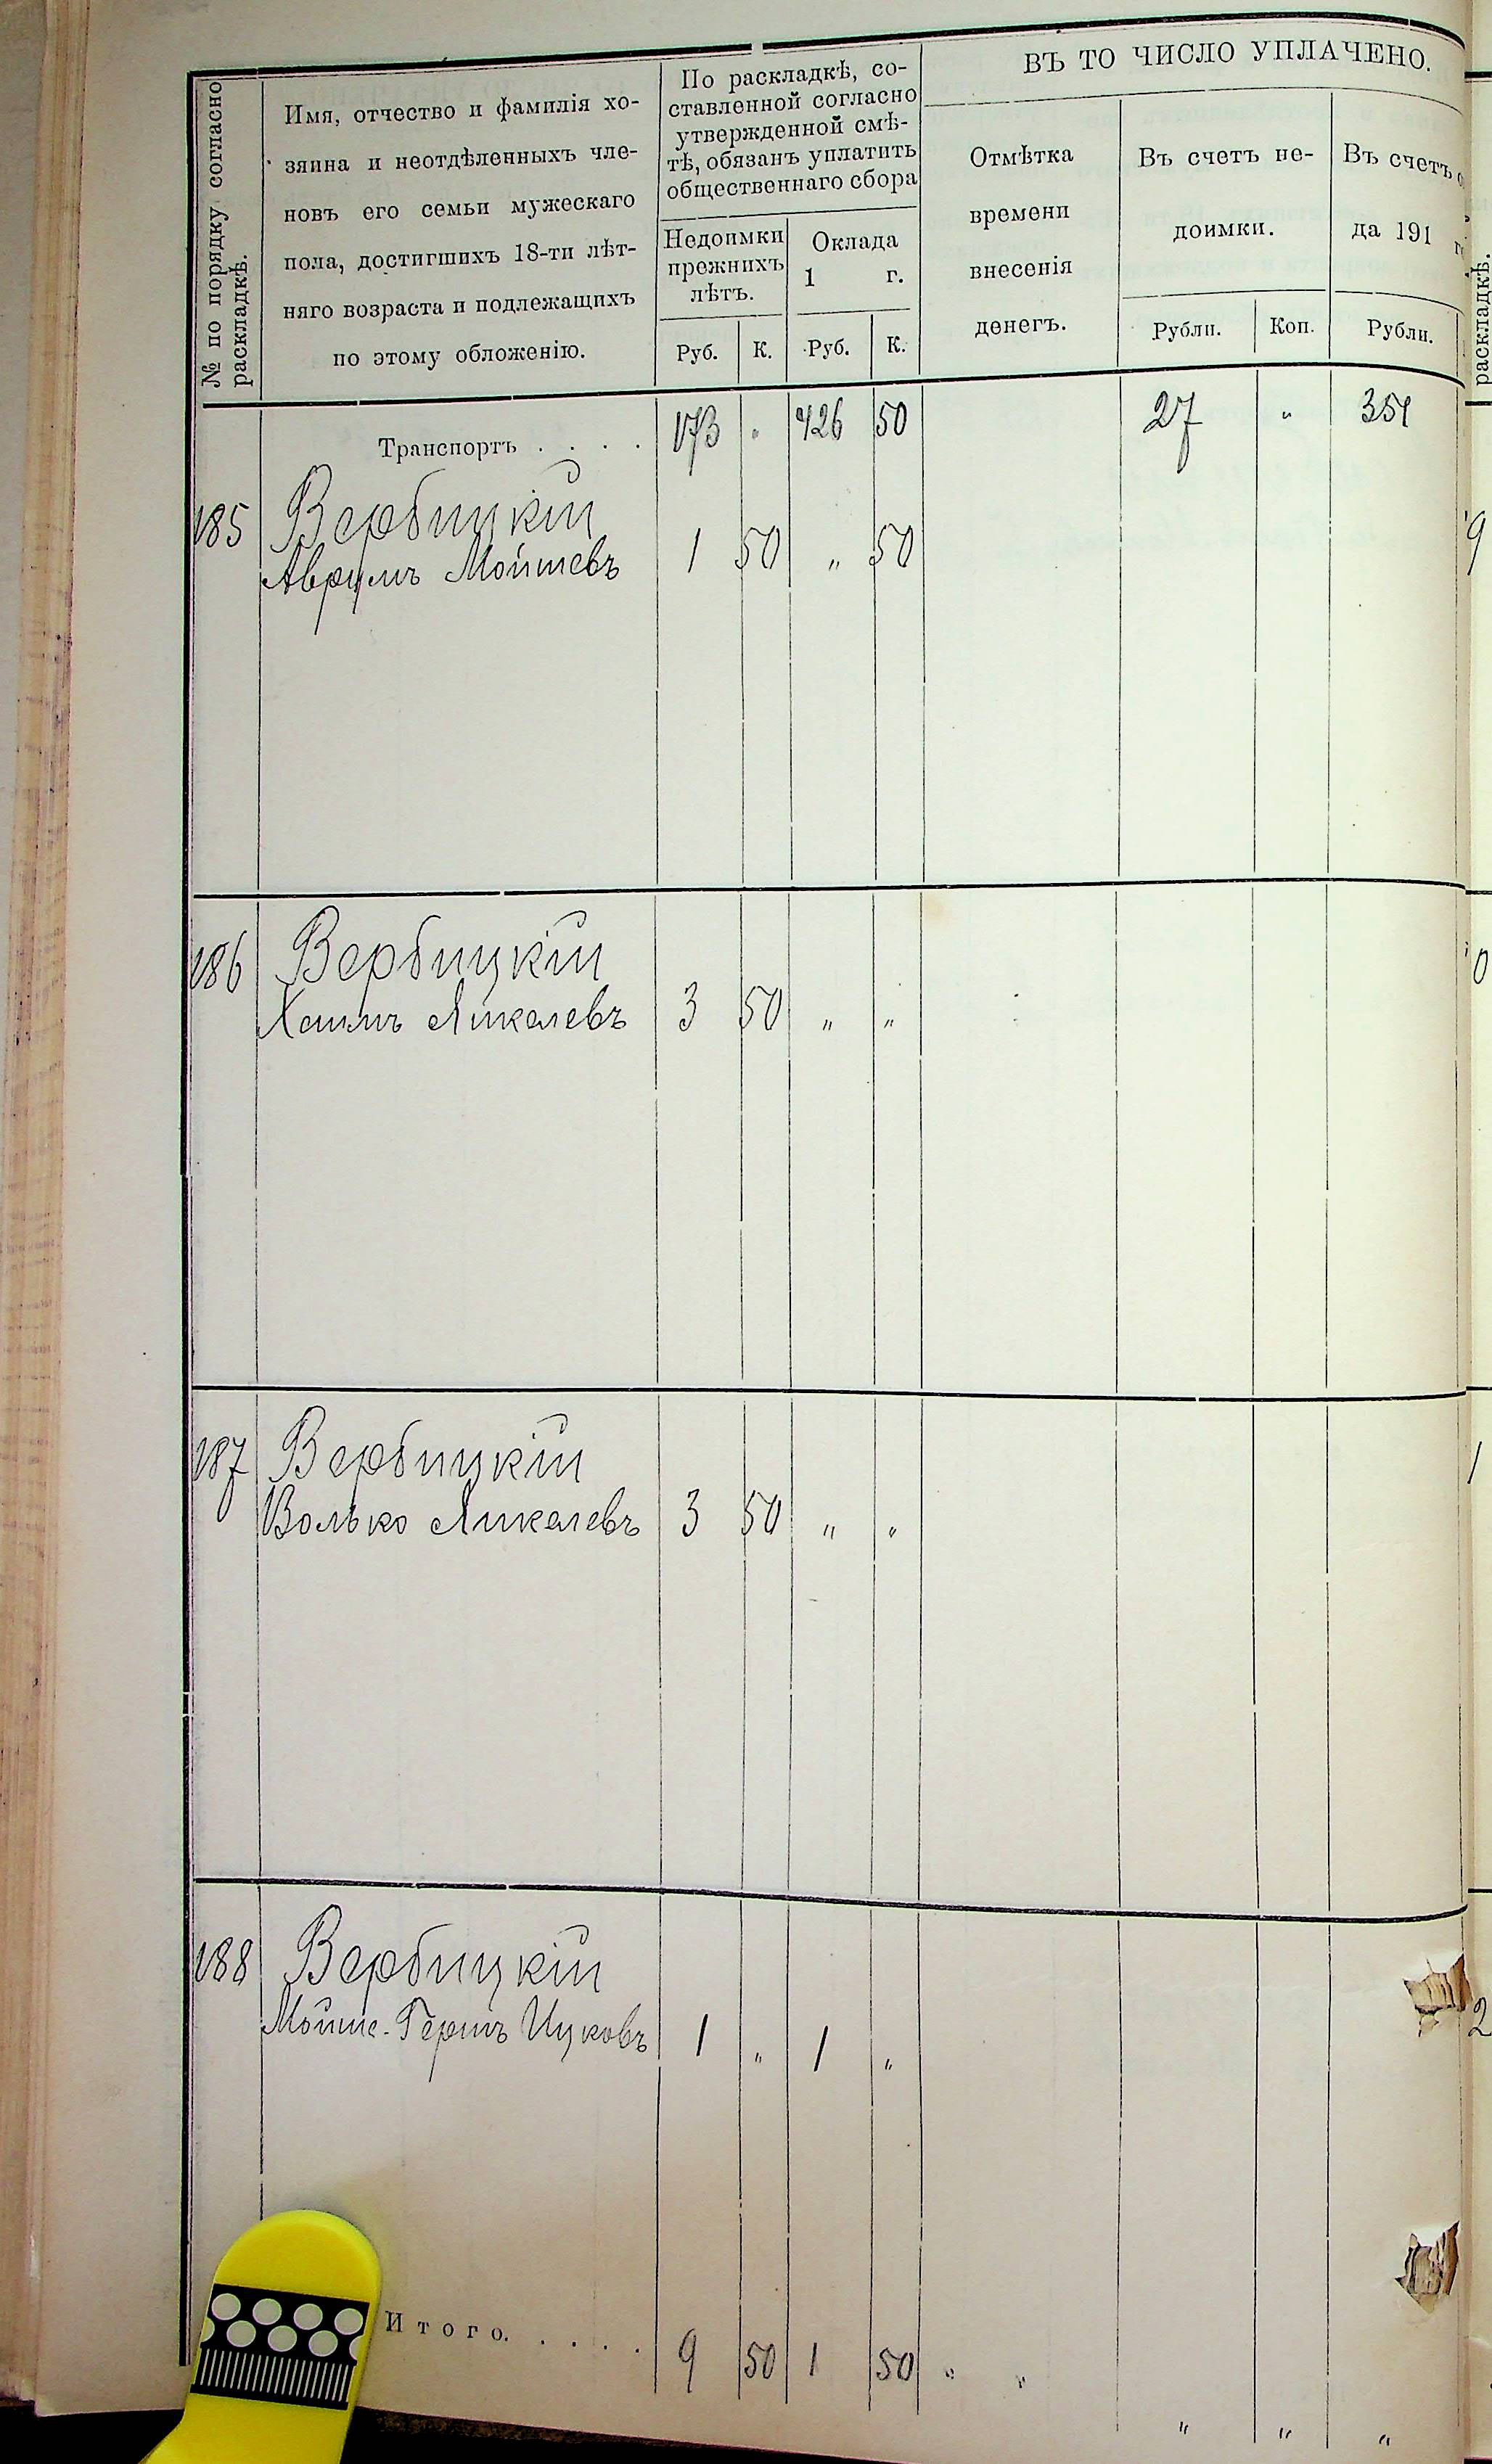 № по порядку согласно
раскладкѣ.
Имя, отчество и фамилія хо-
зяина и неотдѣленныхъ чле-
новъ его семьи мужескаго
пола, достигшихъ 18-ти лѣт-
няго возраста и подлежащихъ
по этому обложенію.
По раскладкѣ, со-
ставленной согласно
утвержденной смѣ-
тѣ, обязанъ уплатить
общественнаго сбора
Недоимки
прежнихъ
лѣтъ.
Оклада
1 г.
Руб. К. Руб. К.
ВЪ ТО ЧИСЛО УПЛАЧЕНО.
Отмѣтка
времени
внесенія
денегъ.
Въ счетъ не-
доимки.
Рубли. Коп.
Въ счетъ о
да 191 г.
Рубли.
раскладкѣ.
Транспортъ . . . . 173 " 426 50 27 "
185 Вербицкій
Аврумъ Мойшевъ 1 50 " 50
9
186 Вербицкій
Хаимъ Янкелевъ 3 50 " "
0
187 Вербицкій
Волько Янкелевъ 3 50 " "
1
188 Вербицкій
Мойше-Гершъ Ицковъ 1 " 1 "
2
Итого. . . . . 9 50 1 50 " " " " "